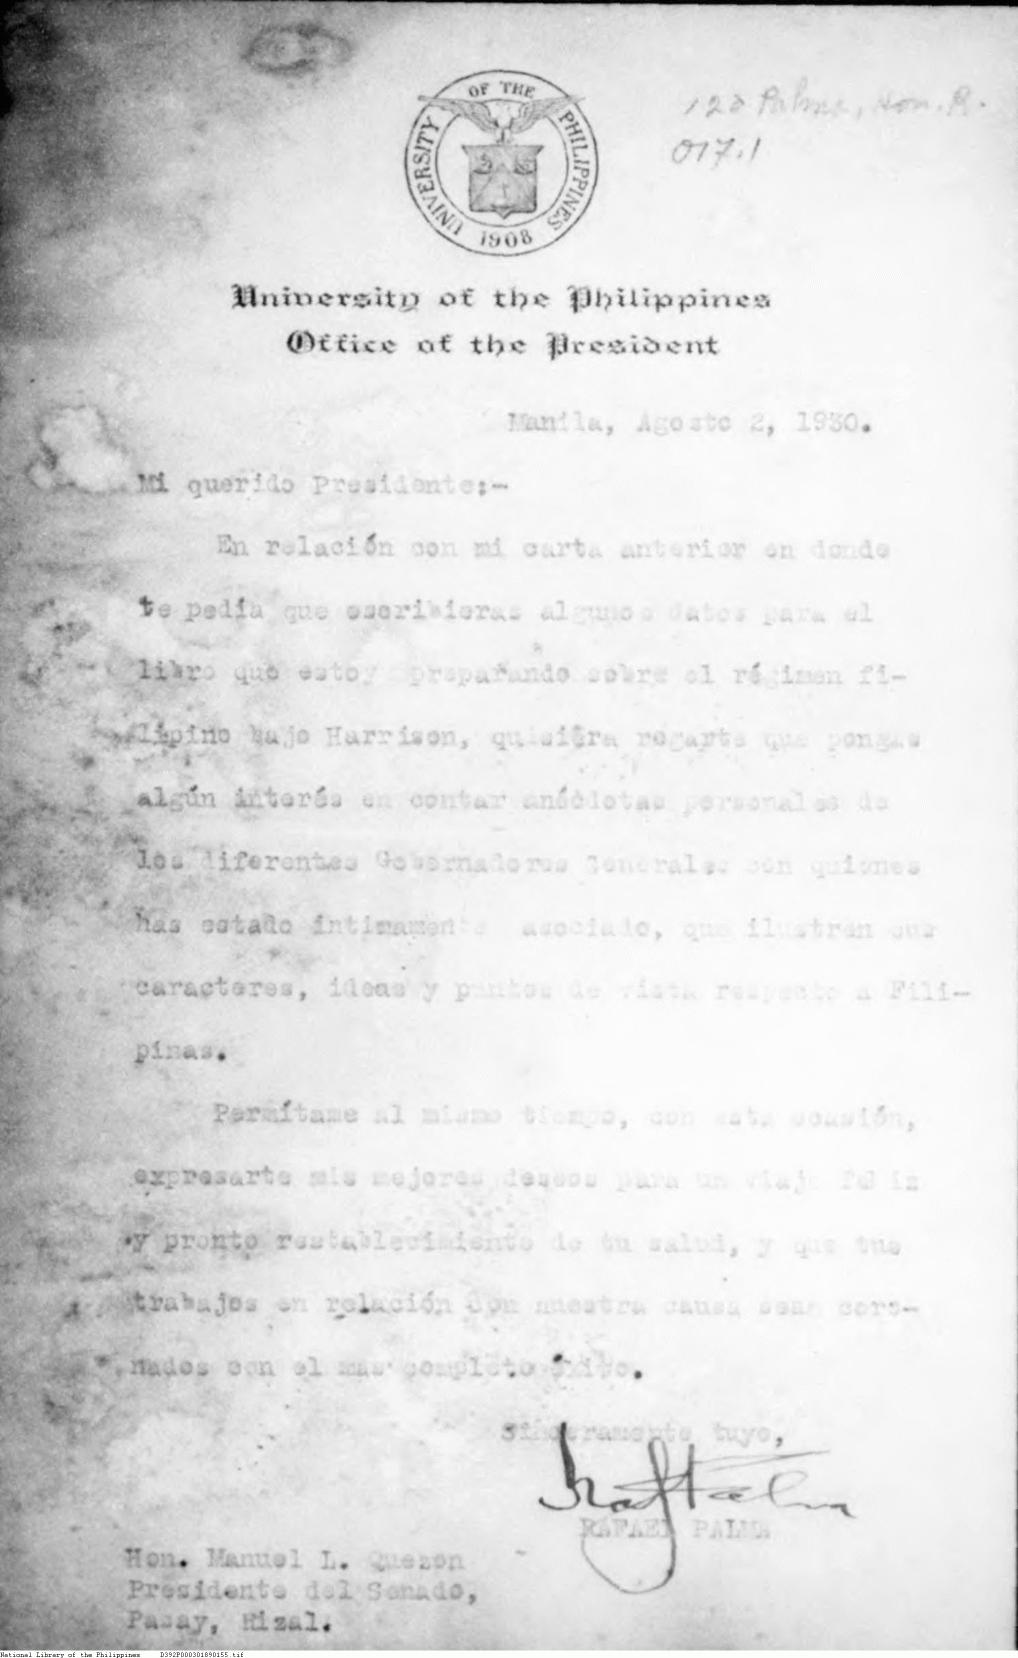 UNIVERSITY OF THE PHILIPPINES
1908
Palma, Hon. R.
017.1
University of the Philippines
Office of the President
Manila, Agosto 2, 1930.
Mi querido Presidente:-
En relación con mi carta anterior en donde
te pedía que escribieras algunos datos para el
libro que estoy preparando sobre el régimen fi-
lipino bajo Harrison, quisiera rogarte que pongas
algún interés en contar anécdotas personales de
los diferentes Gobernadores Generales con quienes
has estado íntimamente asociado, que ilustren sus
caracteres, ideas y puntos de vista respecto a Fili-
pinas.
Permítame al mismo tiempo, con esta ocasión,
expresarte mis mejores deseos para un viaje feliz
y pronto restablecimiento de tu salud, y que tus
trabajos en relación con nuestra causa sean coro-
nados con el mas completo éxito.
Sinceramente tuyo,
Raf Palma
RAFAEL PALMA
Hon. Manuel L. Quezon
Presidente del Senado,
Pasay, Rizal.
National Library of the Philippines D392P000301890155.tif